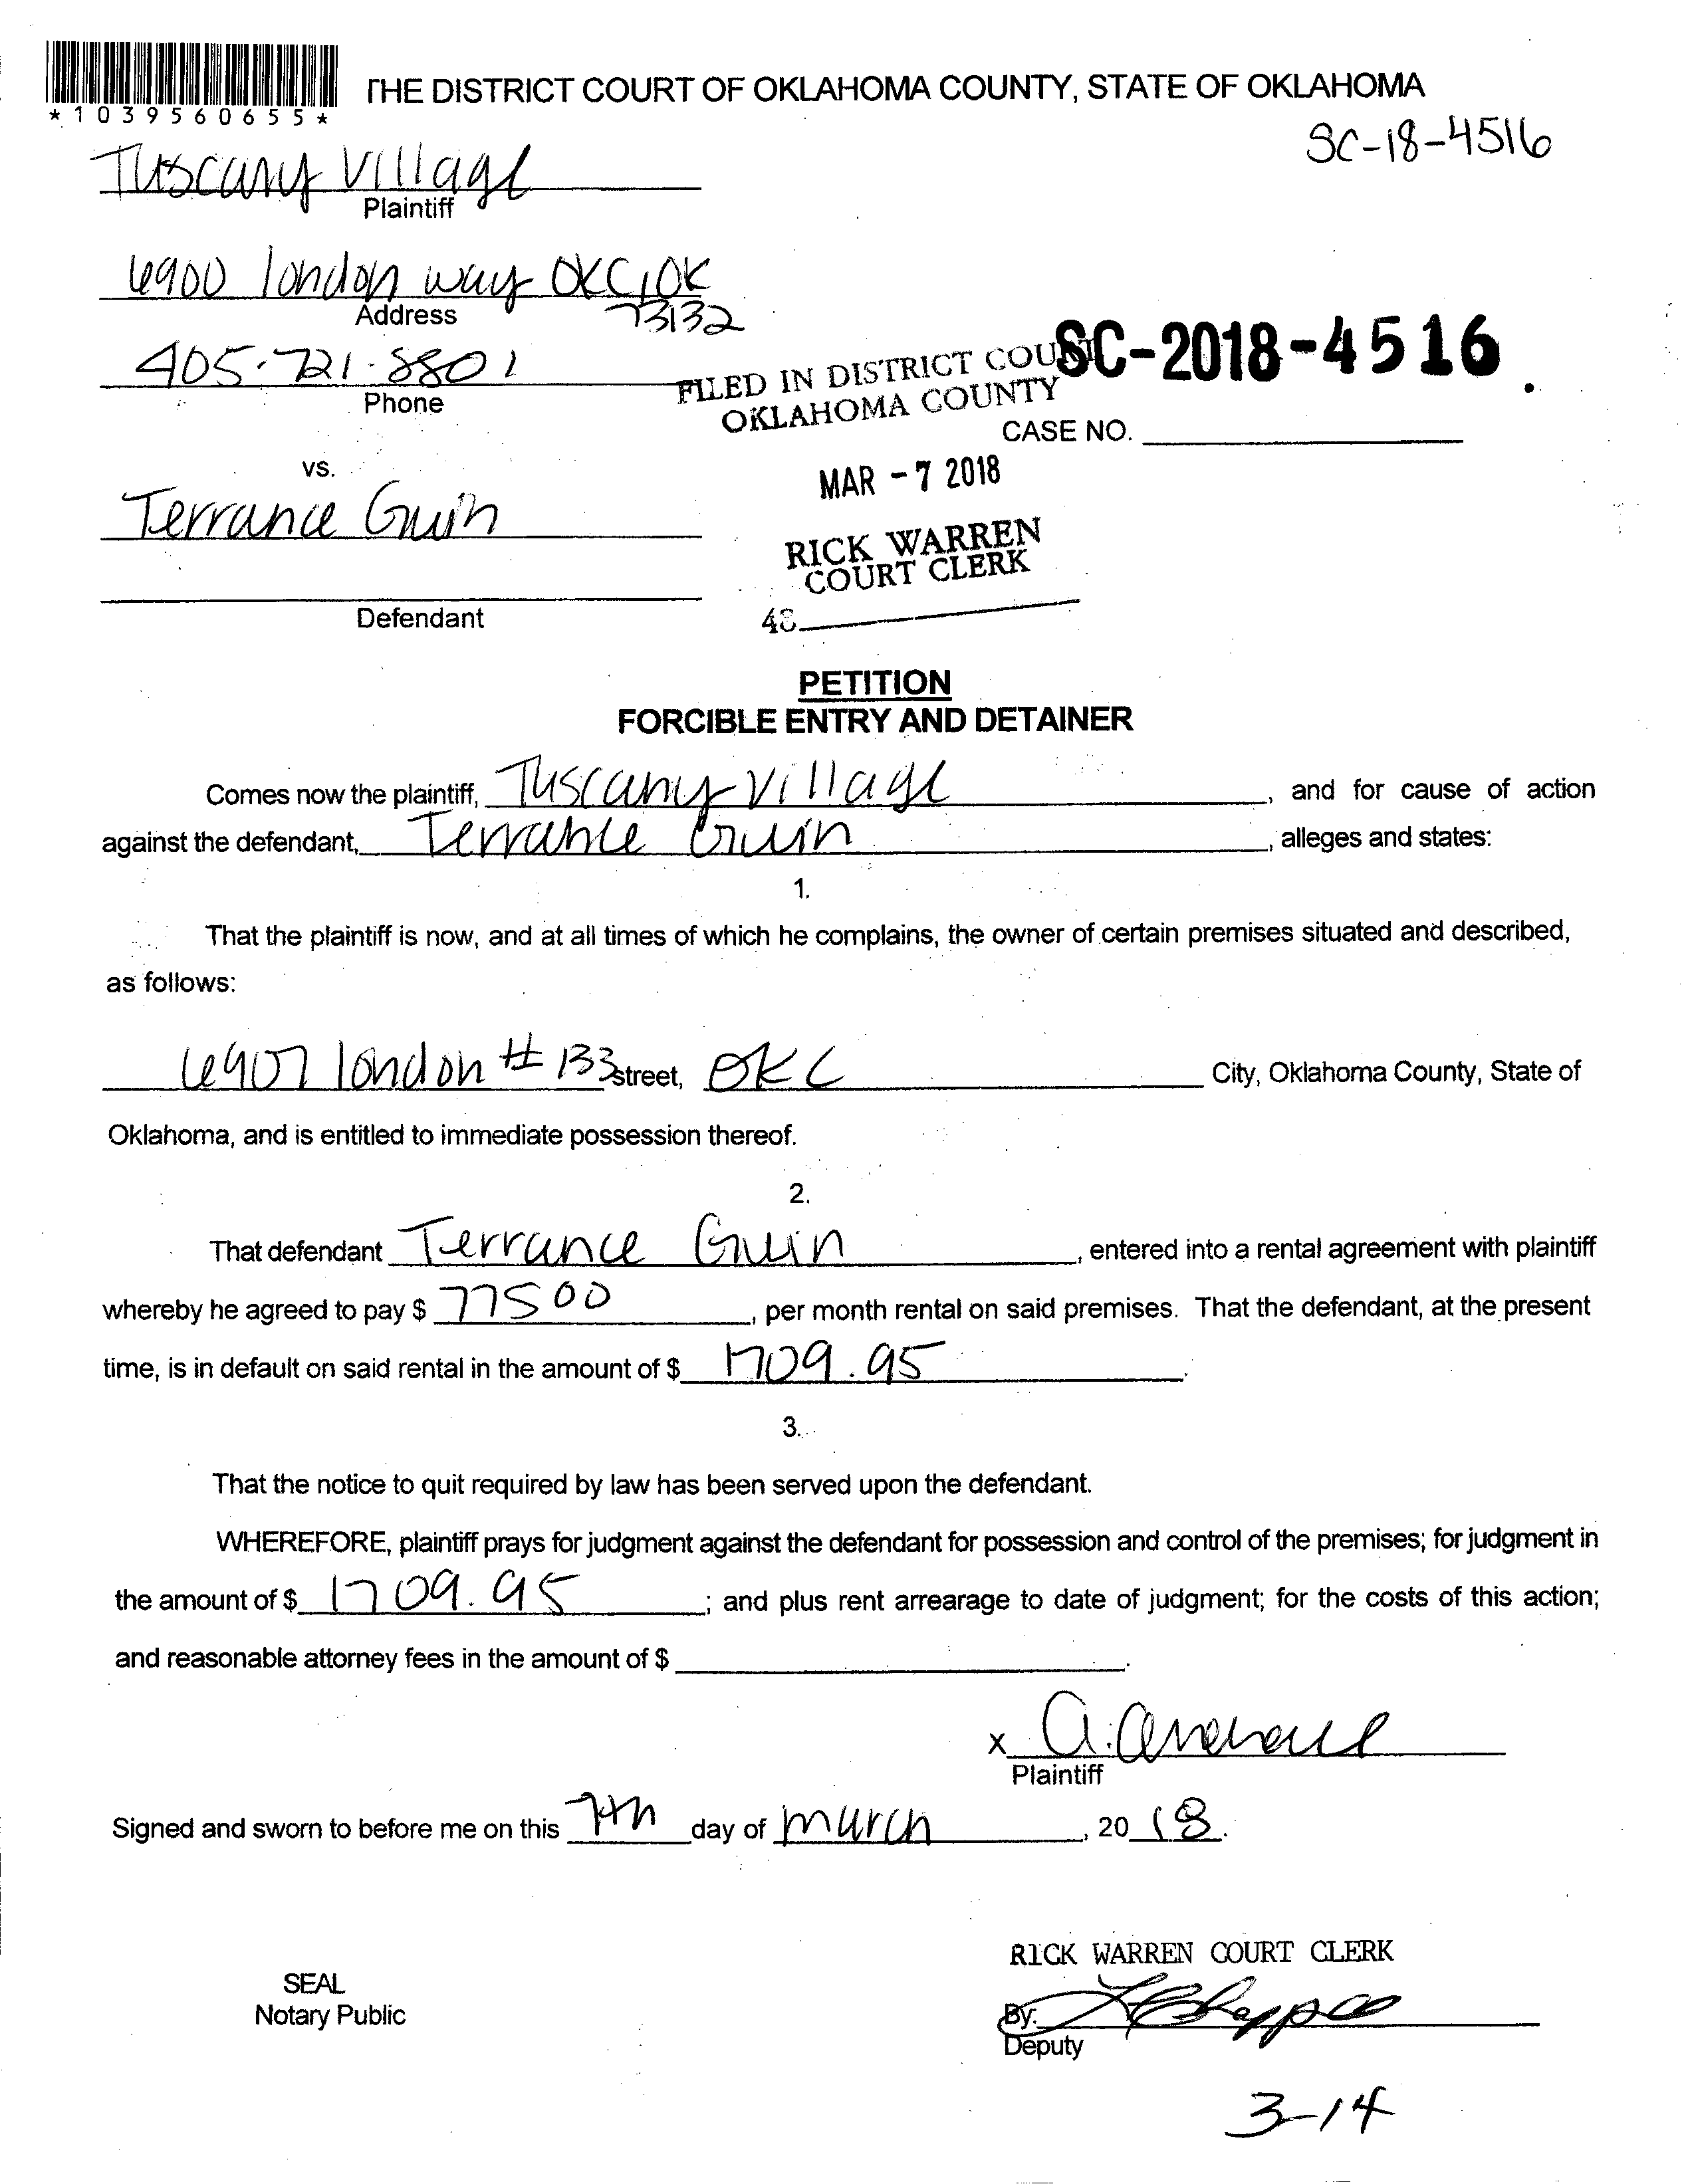 *1039560655*
THE DISTRICT COURT OF OKLAHOMA COUNTY, STATE OF OKLAHOMA
SC-18-4516
Tuscany Village
Plaintiff
6900 london way OKC, OK
Address 73132
405-721-8801
Phone
FILED IN DISTRICT COURT
OKLAHOMA COUNTY
SC-2018-4516
CASE NO.
vs.
MAR - 7 2018
Terrance Guin
RICK WARREN
COURT CLERK
Defendant
48
PETITION
FORCIBLE ENTRY AND DETAINER
Comes now the plaintiff, Tuscany Village, and for cause of action
against the defendant, Terrance Guin, alleges and states:
1.
That the plaintiff is now, and at all times of which he complains, the owner of certain premises situated and described,
as follows:
6907 london # 133 street, OKC City, Oklahoma County, State of
Oklahoma, and is entitled to immediate possession thereof.
2.
That defendant Terrance Guin, entered into a rental agreement with plaintiff
whereby he agreed to pay $ 775 00, per month rental on said premises. That the defendant, at the present
time, is in default on said rental in the amount of $ 1709.95.
3.
That the notice to quit required by law has been served upon the defendant.
WHEREFORE, plaintiff prays for judgment against the defendant for possession and control of the premises; for judgment in
the amount of $ 1709.95; and plus rent arrearage to date of judgment; for the costs of this action;
and reasonable attorney fees in the amount of $ .
x
Plaintiff
Signed and sworn to before me on this 7th day of march, 2018.
RICK WARREN COURT CLERK
SEAL
Notary Public
By:
Deputy
3-14